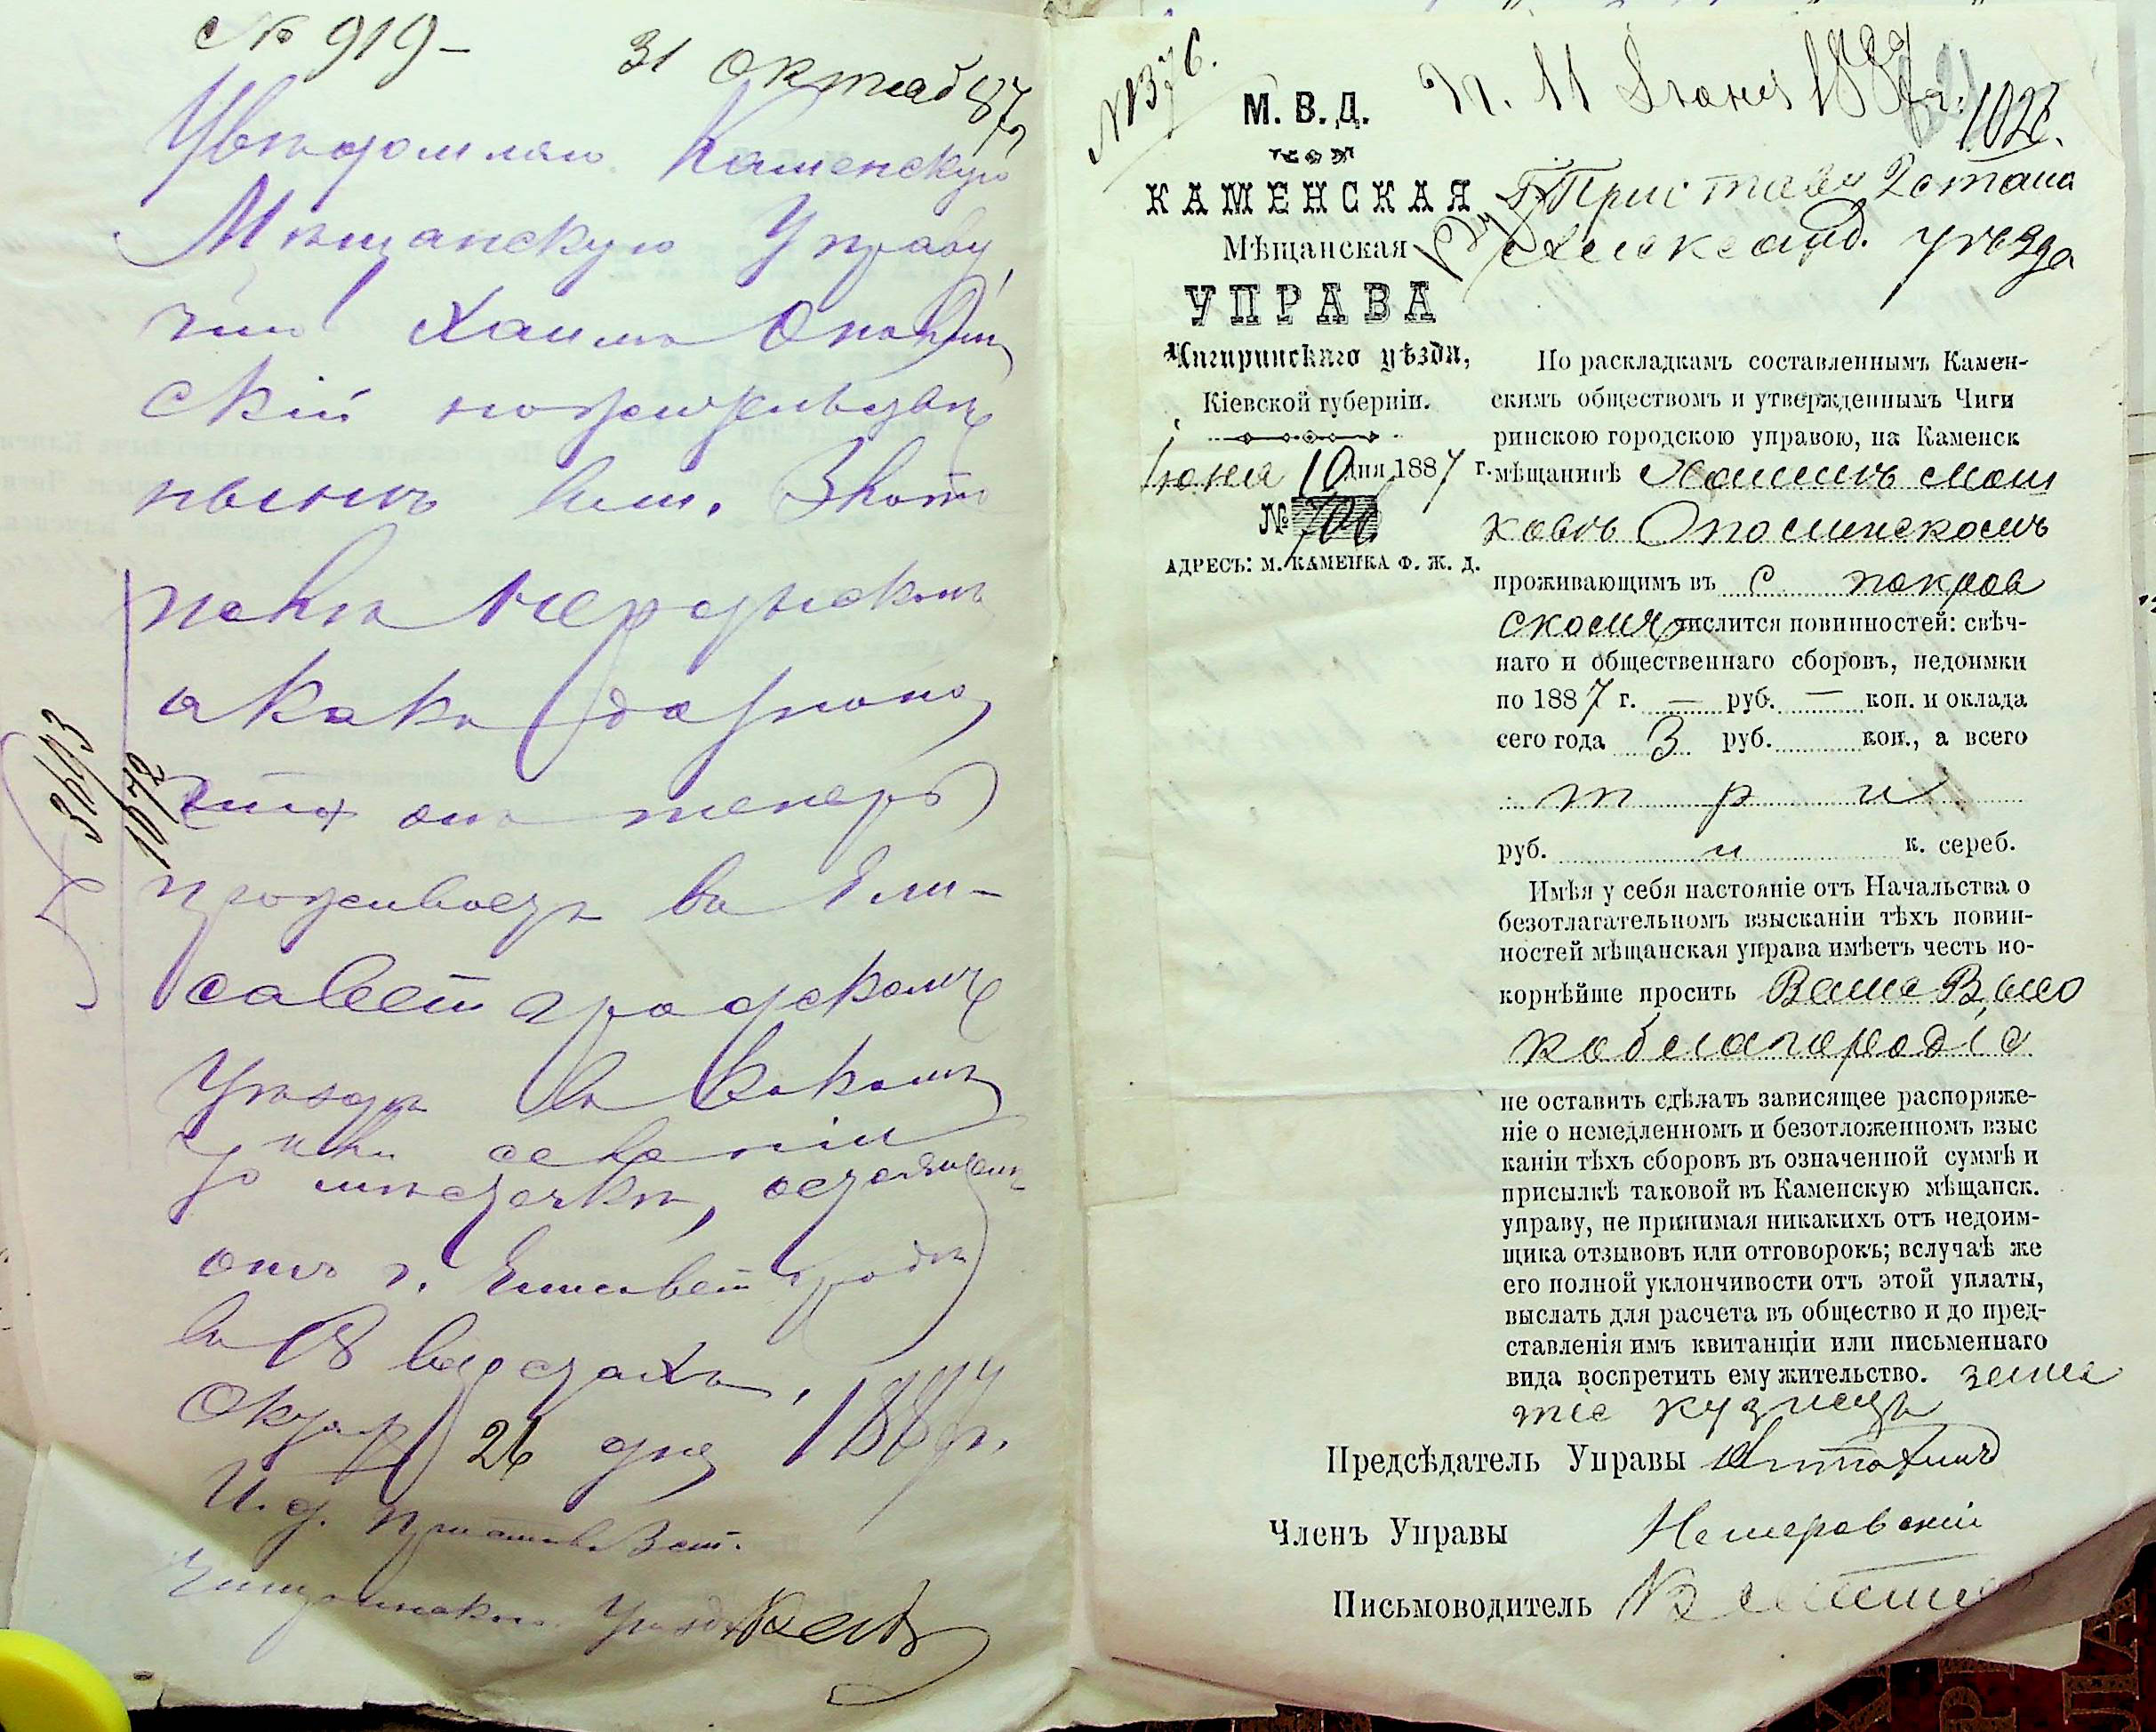 № 919 —
31 Октяб 87 г
Увѣдомляю Каменскую
Мѣщанскую Управу,
что Хаимъ
скій
въ м.
а какъ дознано,
что онъ теперь
проживаетъ въ Ели-
саветградскомъ
Уѣздѣ въ какомъ
то мѣстечкѣ,
отъ г. Елисаветграда
въ 18 верстахъ,
Октяб 26 дня 1887 г.
И. д. Пристава 3 ст.
Чигиринскаго Уѣзда
3493
1072
№ 1376.
П. 11 Іюня 1887 г.
М. В. Д.
КАМЕНСКАЯ
Мѣщанская
УПРАВА
Чигиринскаго уѣзда,
Кіевской губерніи.
Іюня 10 дня 1887 г.
№ 706
АДРЕСЪ: М. КАМЕНКА Ф. Ж. Д.
Г. Приставу 2 стана
Александ. уѣзда
По раскладкамъ составленнымъ Камен-
скимъ обществомъ и утвержденнымъ Чиги
ринскою городскою управою, на Каменск
мѣщанинѣ Хаимѣ Мош
ковѣ Опошнскомъ
проживающимъ въ с. покров
скомъ числится повинностей: свѣч-
наго и общественнаго сборовъ, недоимки
по 1887 г. — руб. — коп. и оклада
сего года 3 руб. коп., а всего
три
руб. и к. сереб.
Имѣя у себя настояніе отъ Начальства о
безотлагательномъ взысканіи тѣхъ повин-
ностей мѣщанская управа имѣетъ честь по-
корнѣйше просить Ваше Высо
коблагородіе
не оставить сдѣлать зависящее распоряже-
ніе о немедленномъ и безотложенномъ взыс
каніи тѣхъ сборовъ въ означенной суммѣ и
присылкѣ таковой въ Каменскую мѣщанск.
управу, не принимая никакихъ отъ недоим-
щика отзывовъ или отговорокъ; вслучаѣ же
его полной уклончивости отъ этой уплаты,
выслать для расчета въ общество и до пред-
ставленія имъ квитанціи или письменнаго
вида воспретить ему жительство.
Предсѣдатель Управы
Членъ Управы Немеровскій
Письмоводитель